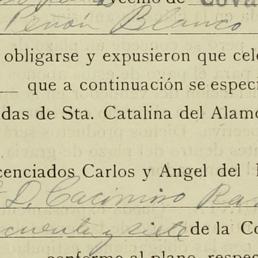 ecino de Cova
Peñón Blanco
obligarse y expusieron que cele
que a continuación se especi
das de Sta. Catalina del Alamo
cenciados Carlos y Angel del
D. Cacimiro Ra
cuenta y siete de la Co
conforme al plano, respec